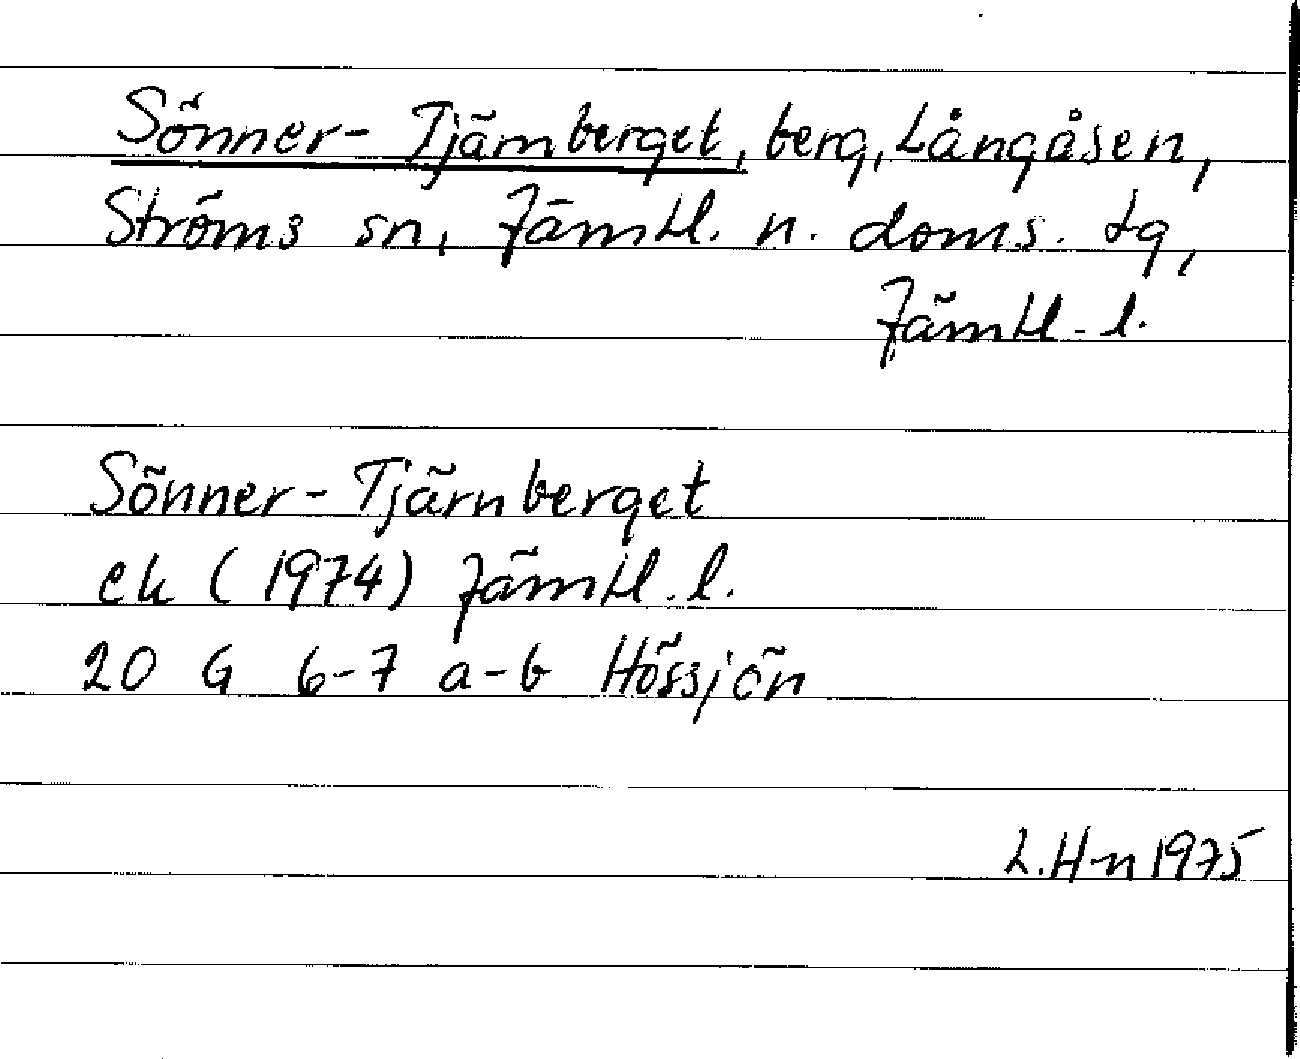 Sönner-Tjärnberget, berg, Långåsen,
Ströms sn, Jämtl. n. doms. tg,
Jämtl. l.
Sönner-Tjärnberget
ek (1974) Jämtl. l.
20 G 6-7 a-b Hössjön
L.H-n 1975